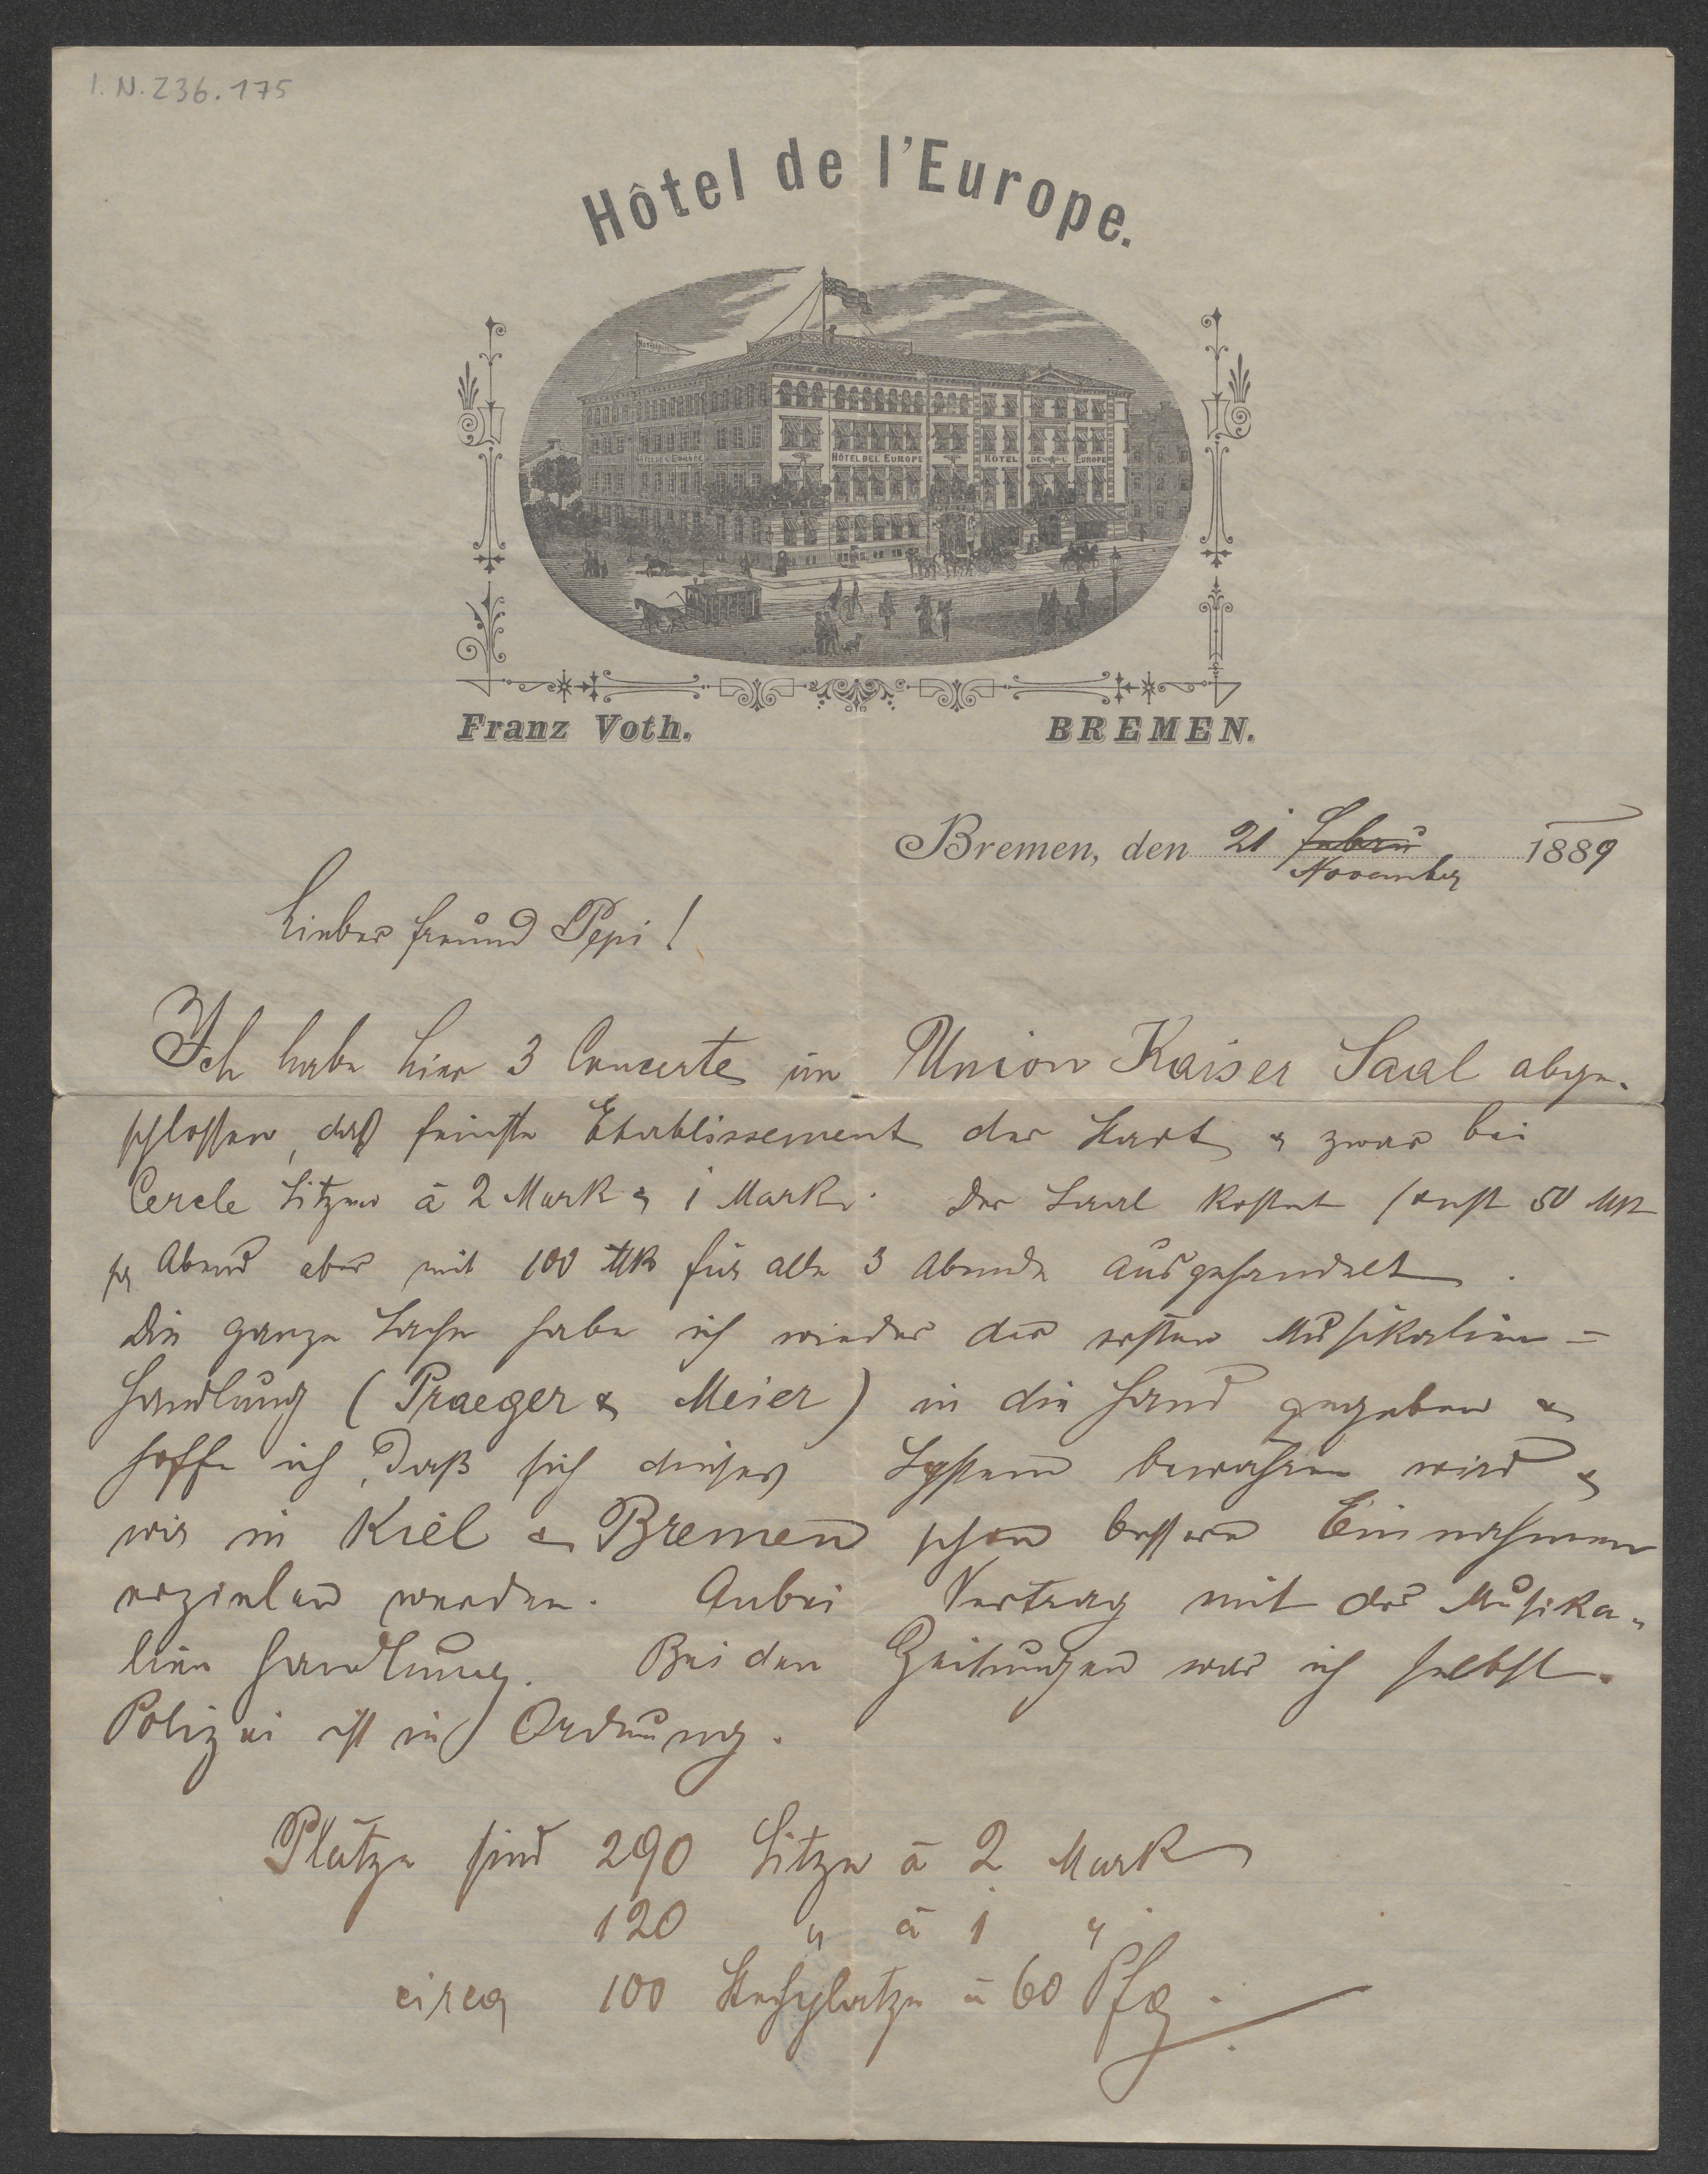 I. N. 236.175
Hôtel de l'Europe.
HÔTEL DE L'EUROPE
HÔTEL DE L'EUROPE
HOTEL DE L'EUROPE
Franz Voth.
BREMEN.
Bremen, den 21 Febru 1889
November
Lieber Freund Pepi!
Ich habe hier 3 Concerte im Union Kaiser Saal abge-
schlossen, daß feinste Etablissement der Stadt & zwar bei
Cercle Sitzen à 2 Mark & 1 Mark. Der Saal kostet sonst 50 Mk
per Abend aber mit 100 Mk für alle 3 Abende ausgehandelt.
Die ganze Sache habe ich wieder der ersten Musikalien=
handlung (Praeger & Meier) in die Hand gegeben &
hoffe ich, daß sich dieses System bewähren wird &
wir in Kiel & Bremen schon bessere Einnahmen
erzielen werden. Anbei Vertrag mit der Musika-
lien Handlung. Bei den Zeitungen war ich selbst.
Polizei ist in Ordnung.
Plätze sind 290 Sitze à 2 Mark
120 " à 1 "
circa 100 Stehplätze à 60 Pfg.